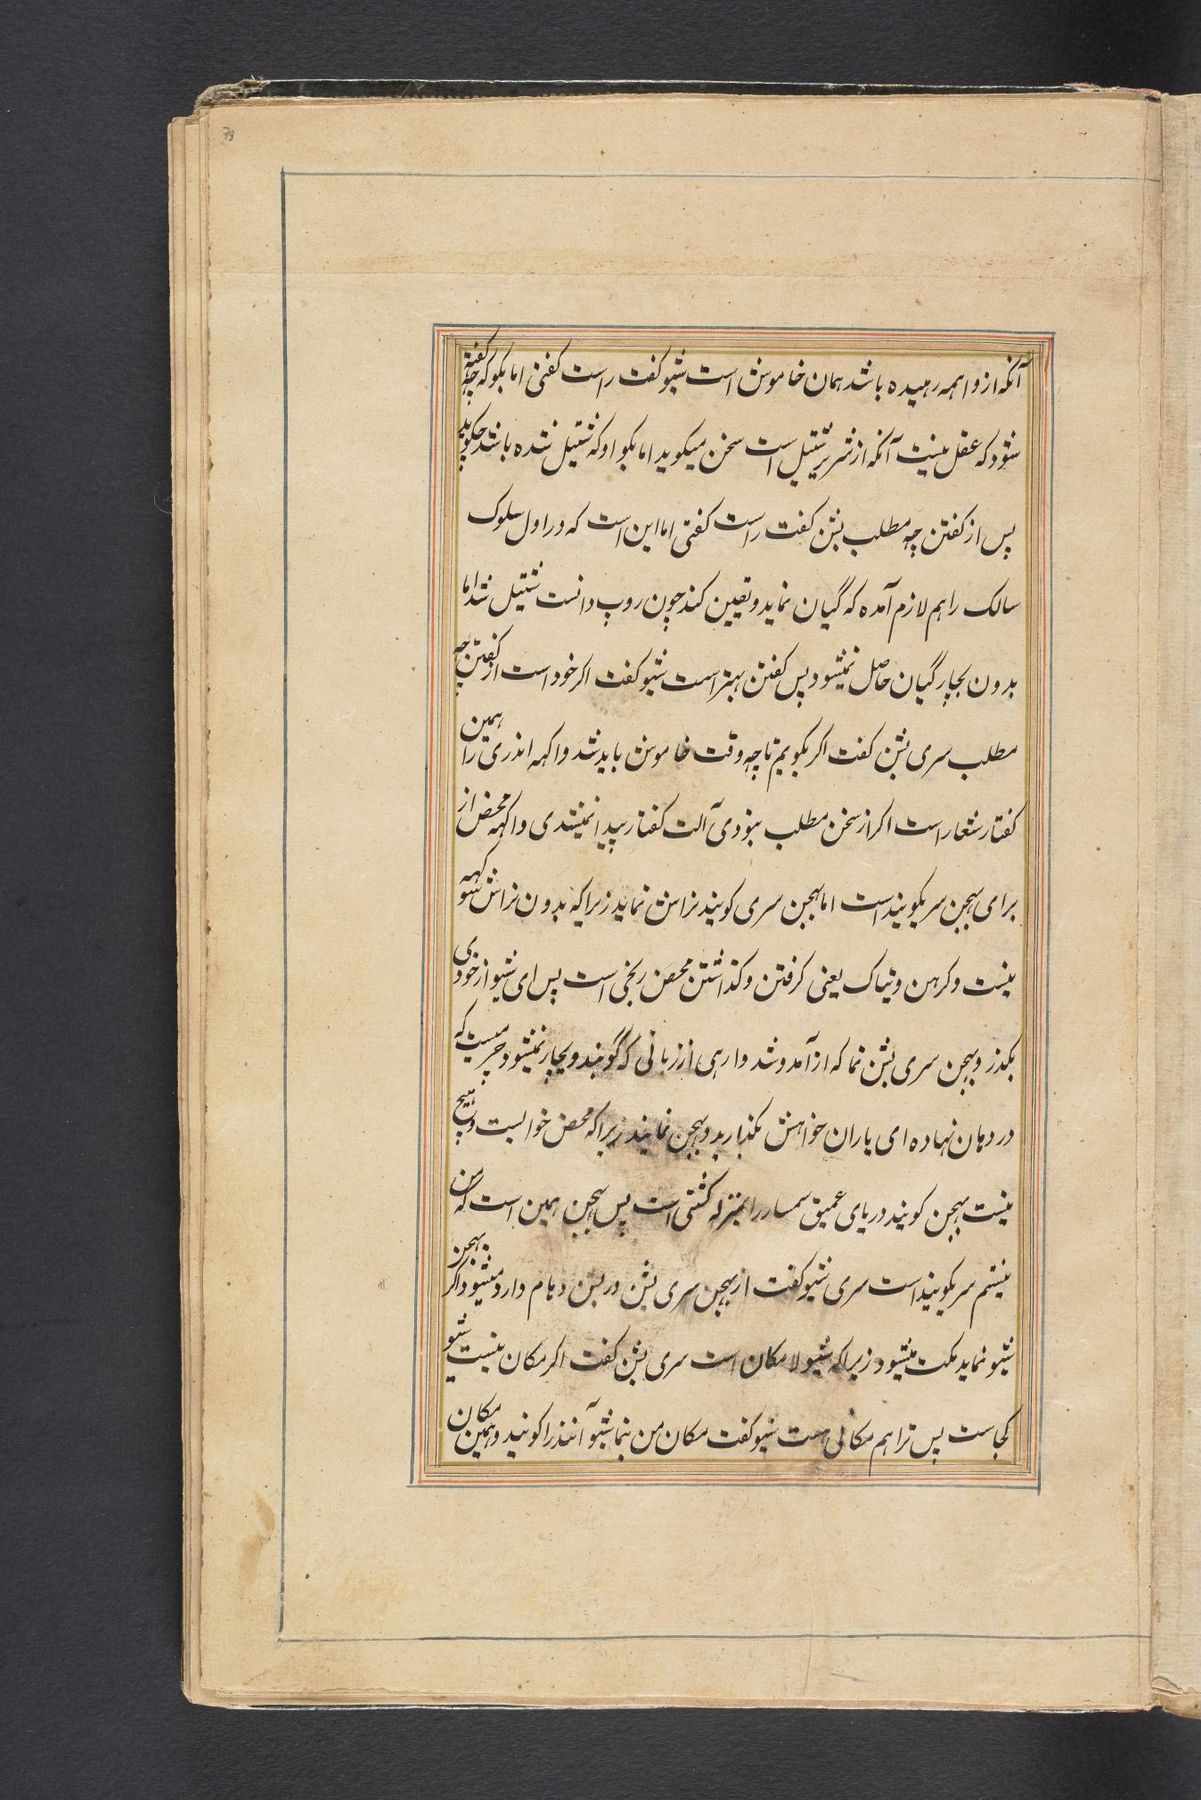 آنکه از واهمه رهیده باشد همان خاموش است شیو کفت راست کفتی اما بکو که چه کفته
شود که عقل نیست آنکه از شریر شتیل است سخن میکوید اما بکو او که شتیل شده باشد چکویم
پس از کفتن چه مطلب بشن کفت راست کفتی اما این است که در اول سلوک
سالک را هم لازم آمده که گیان نماید و تعین کند چون روپ دانست شتیل شد اما
بدون بچار گیان حاصل نمیشود پس کفتن بهتر است شیو کفت اکر خود است از کفتن چه
مطلب سری بشن کفت اکر بکویم تا چه وقت خاموش باید شد واکهه اندری را همین
کفتار شعار است اکر از سخن مطلب نبودی آلت کفتار پیدا نمیشدی واکهه محض از
برای بهجن سریکویند است اما بهجن سری کویند نراس نماید زیرا که بدون نراس سوکهه
نیست و کرهن و تیاک یعنی کرفتن و کذاشتن محض رنجی است پس ای شیو از خودی
بکذر و بهجن سری بشن نما که از آمد و شد وارهی از زبانی که گویند و بچار نمیشود چرمیست که
در دهان نهاده ای یاران خواهش بکذارید و بهجن نمایند زیرا که محض خوابست و هیچ
نیست بهجن کویند دریای عمیق سمسار را بمنزله کشتی است پس بهجن همین است که من
نیستم سریکویند است سری شیو کفت از بهجن سری بشن در بشن دهام دارد میشود و اکر بهجن
شیو نماید مکت میشود زیرا که شیو لا مکان است سری بشن کفت اکر مکان نیست شیو
کجاست پس ترا هم مکانی است شیو کفت مکان من بنما شیو آنند را کویند و همین مکان